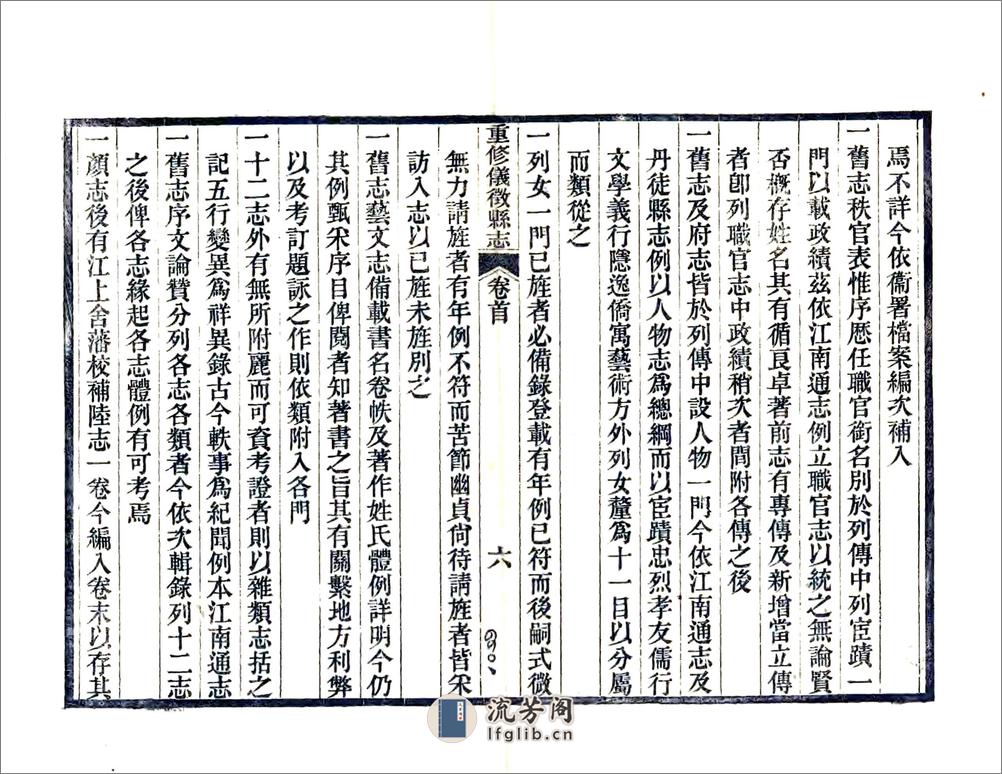 焉不詳今依衙署檔案編次補入
一舊志秩官表惟序歷任職官銜名別於列傳中列宦蹟一
門以載政績茲依江南通志例立職官志以統之無論賢
否概存姓名其有循良卓著前志有專傳及新增當立傳
者卽列職官志中政績稍次者間附各傳之後
一舊志及府志皆於列傳中設人物一門今依江南通志及
丹徒縣志例以人物志爲總綱而以宦蹟忠烈孝友儒行
文學義行隱逸僑寓藝術方外列女釐爲十一目以分屬
而類從之
一列女一門已旌者必備錄登載有年例已符而後嗣式微
重修儀徵縣志 卷首 六
無力請旌者有年例不符而苦節幽貞尙待請旌者皆采
訪入志以已旌未旌別之
一舊志藝文志備載書名卷帙及著作姓氏體例詳明今仍
其例甄采序目俾閱者知著書之旨其有關繫地方利弊
以及考訂題詠之作則依類附入各門
一十二志外有無所附麗而可資考證者則以雜類志括之
記五行變異爲祥異錄古今軼事爲紀聞例本江南通志
一舊志序文論贊分列各志各類者今依次輯錄列十二志
之後俾各志緣起各志體例有可考焉
一顏志後有江上舍藩校補陸志一卷今編入卷末以存其
流芳阁
lfglib.cn